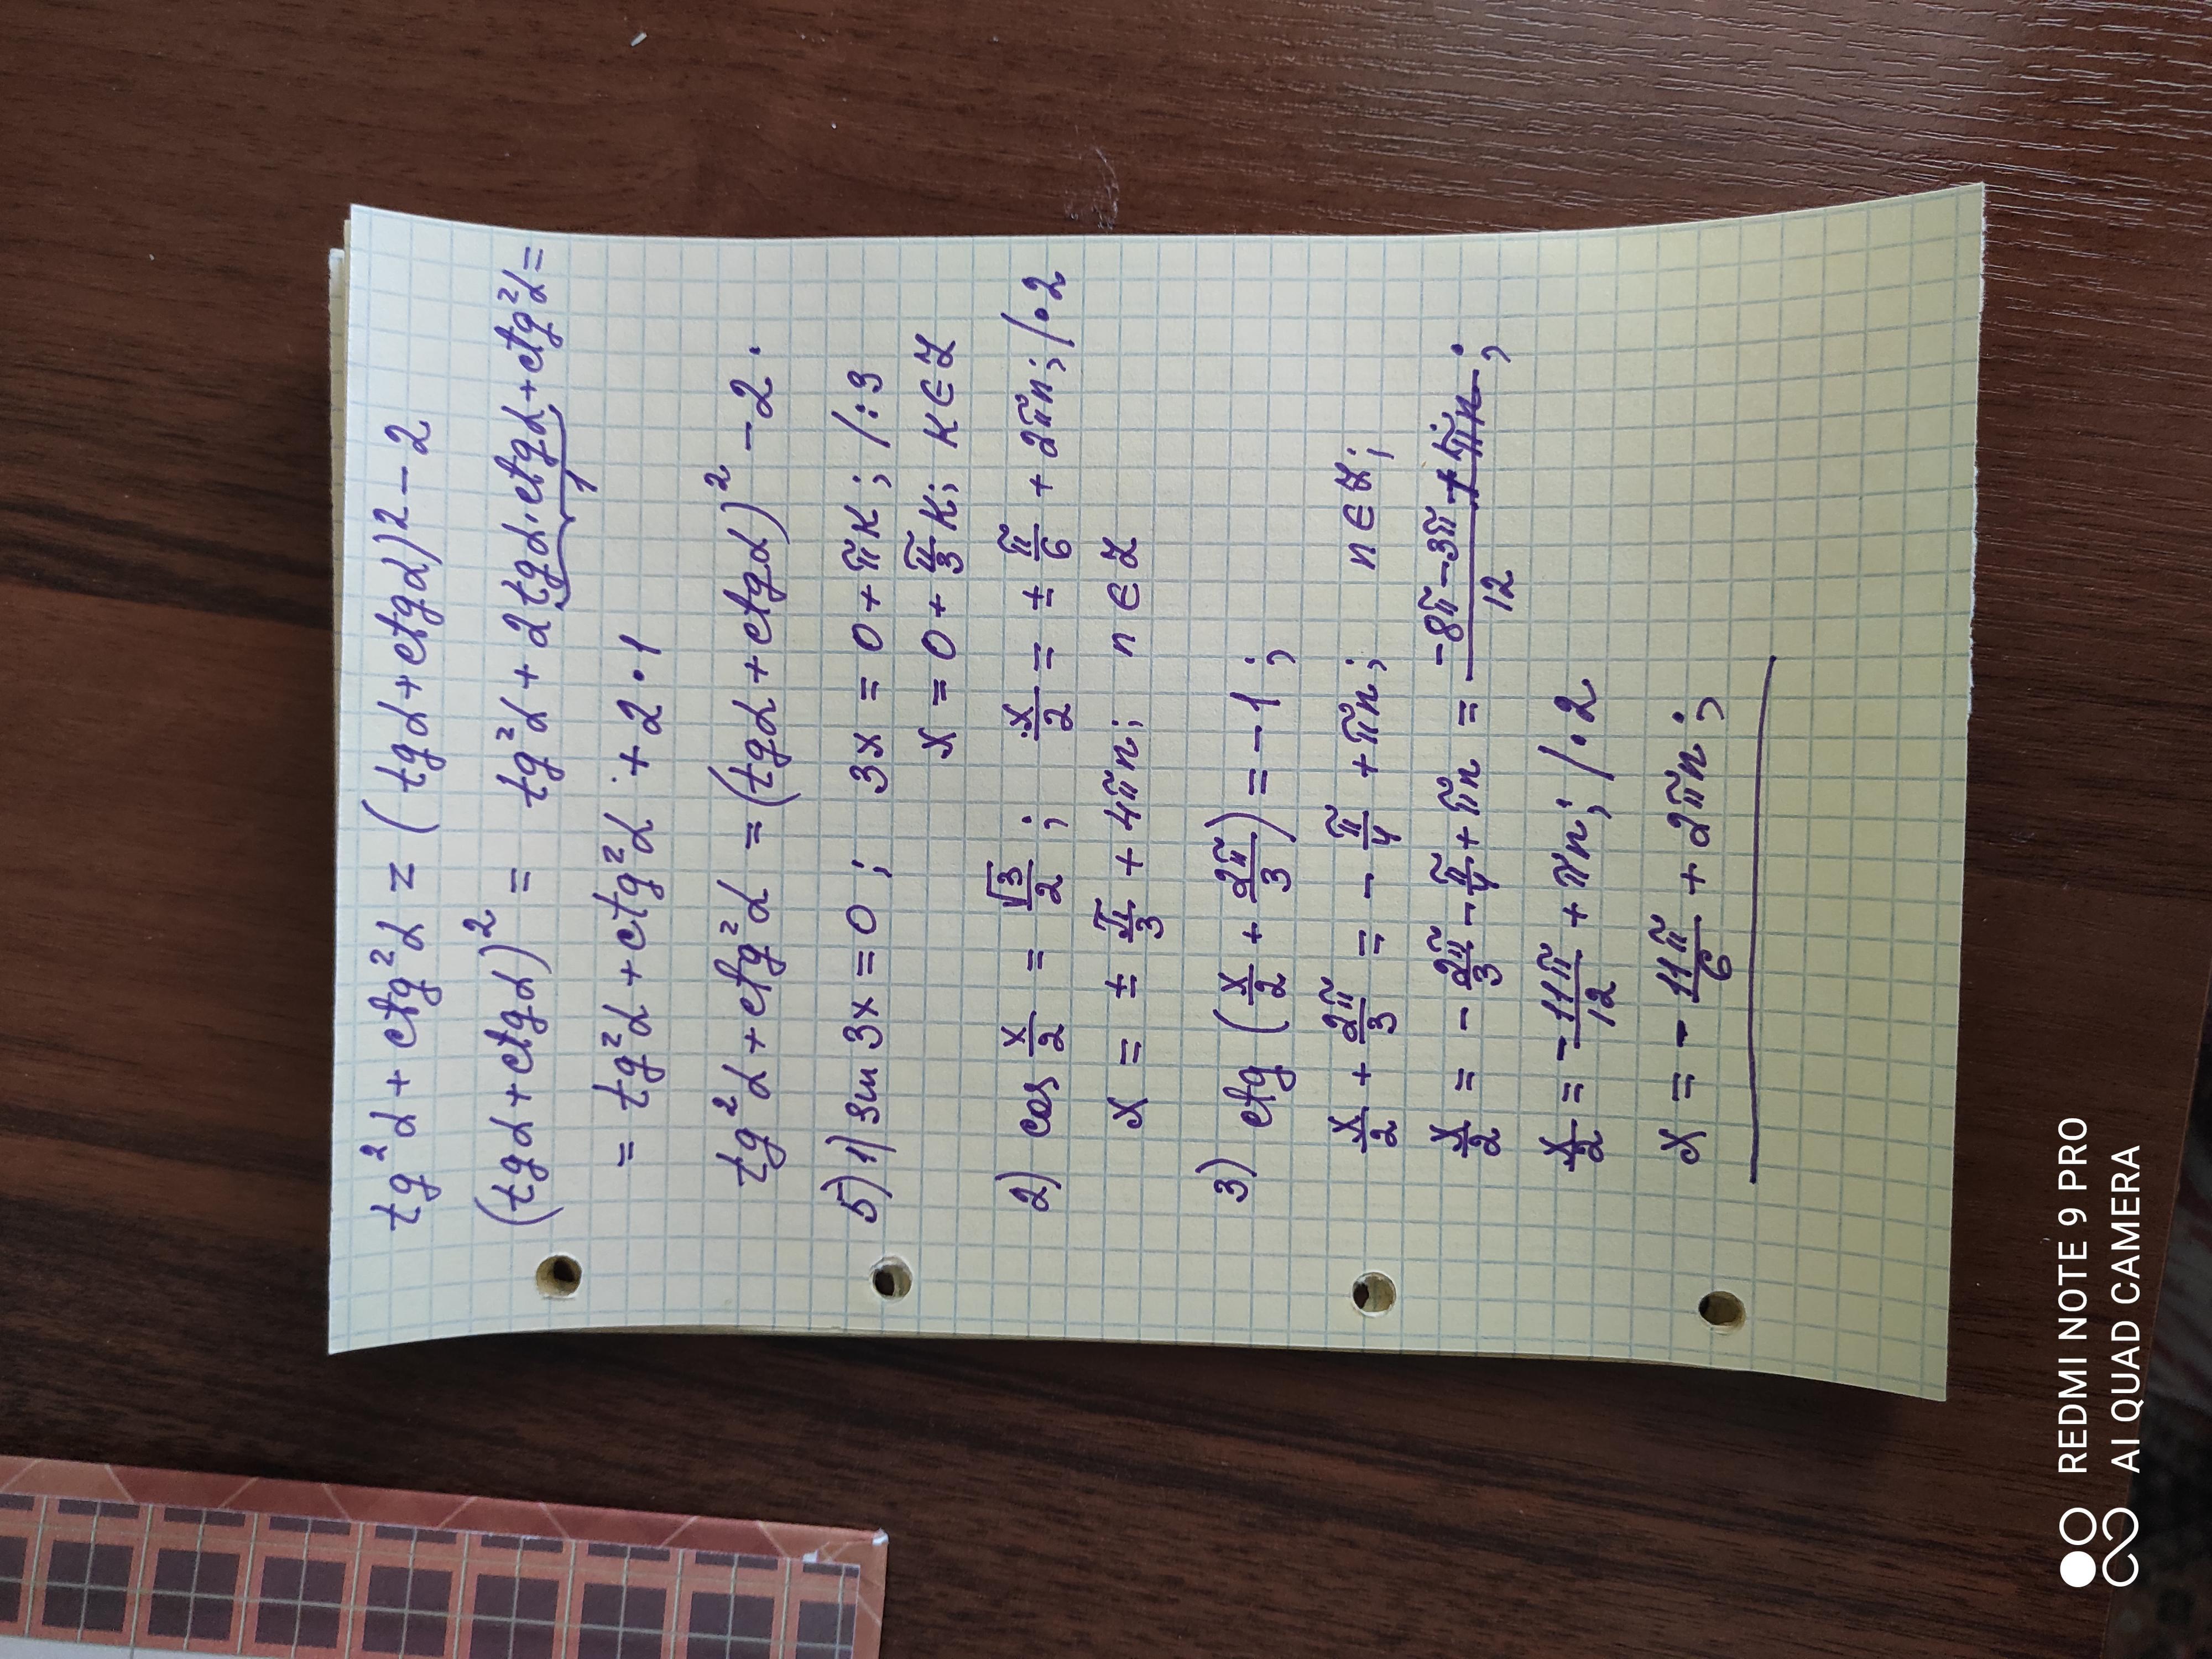 tg²α + ctg²α = (tgα + ctgα)2 - 2
(tgα + ctgα)² = tg²α + 2tgα·ctgα + ctg²α =
1
= tg²α + ctg²α + 2·1
tg²α + ctg²α = (tgα + ctgα)² - 2.
5) 1) sin 3x = 0 ; 3x = 0 + πк ; /:3
x = 0 + π/3 к; к∈Z
2) cos x/2 = √3/2 ; x/2 = ± π/6 + 2πn; /·2
x = ± π/3 + 4πn; n∈Z
3) ctg (x/2 + 2π/3) = -1 ;
x/2 + 2π/3 = - π/4 + πn; n∈Z;
x/2 = - 2π/3 - π/4 + πn = (-8π - 3π + πn)/12 ;
x/2 = - 11π/12 + πn; /·2
x = - 11π/6 + 2πn ;
REDMI NOTE 9 PRO
AI QUAD CAMERA